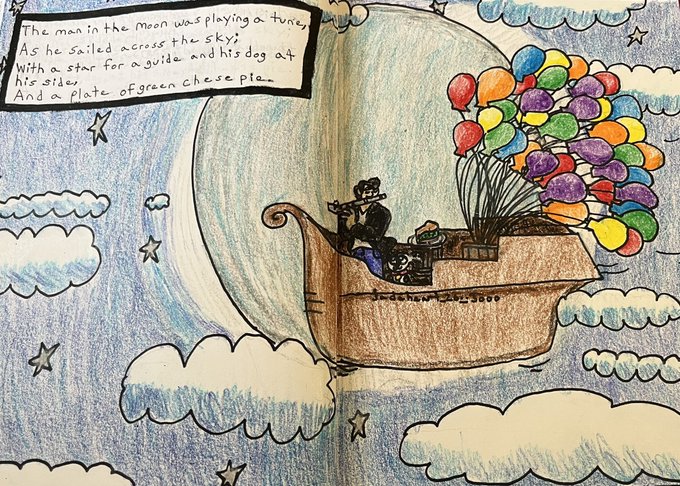 The man in the moon was playing a tune,
As he sailed across the sky;
With a star for a guide and his dog at
his side,
And a plate of green chese pie.